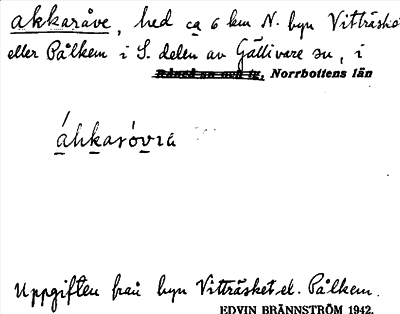 akkaråve, hed ca 6 km N. byn Vitträsket
eller Pålkem i S. delen av Gällivare sn, i
Råneå sn och tg, Norrbottens län
áhkaróvra
Uppgiften från byn Vitträsket el. Pålkem.
EDVIN BRÄNNSTRÖM 1942.